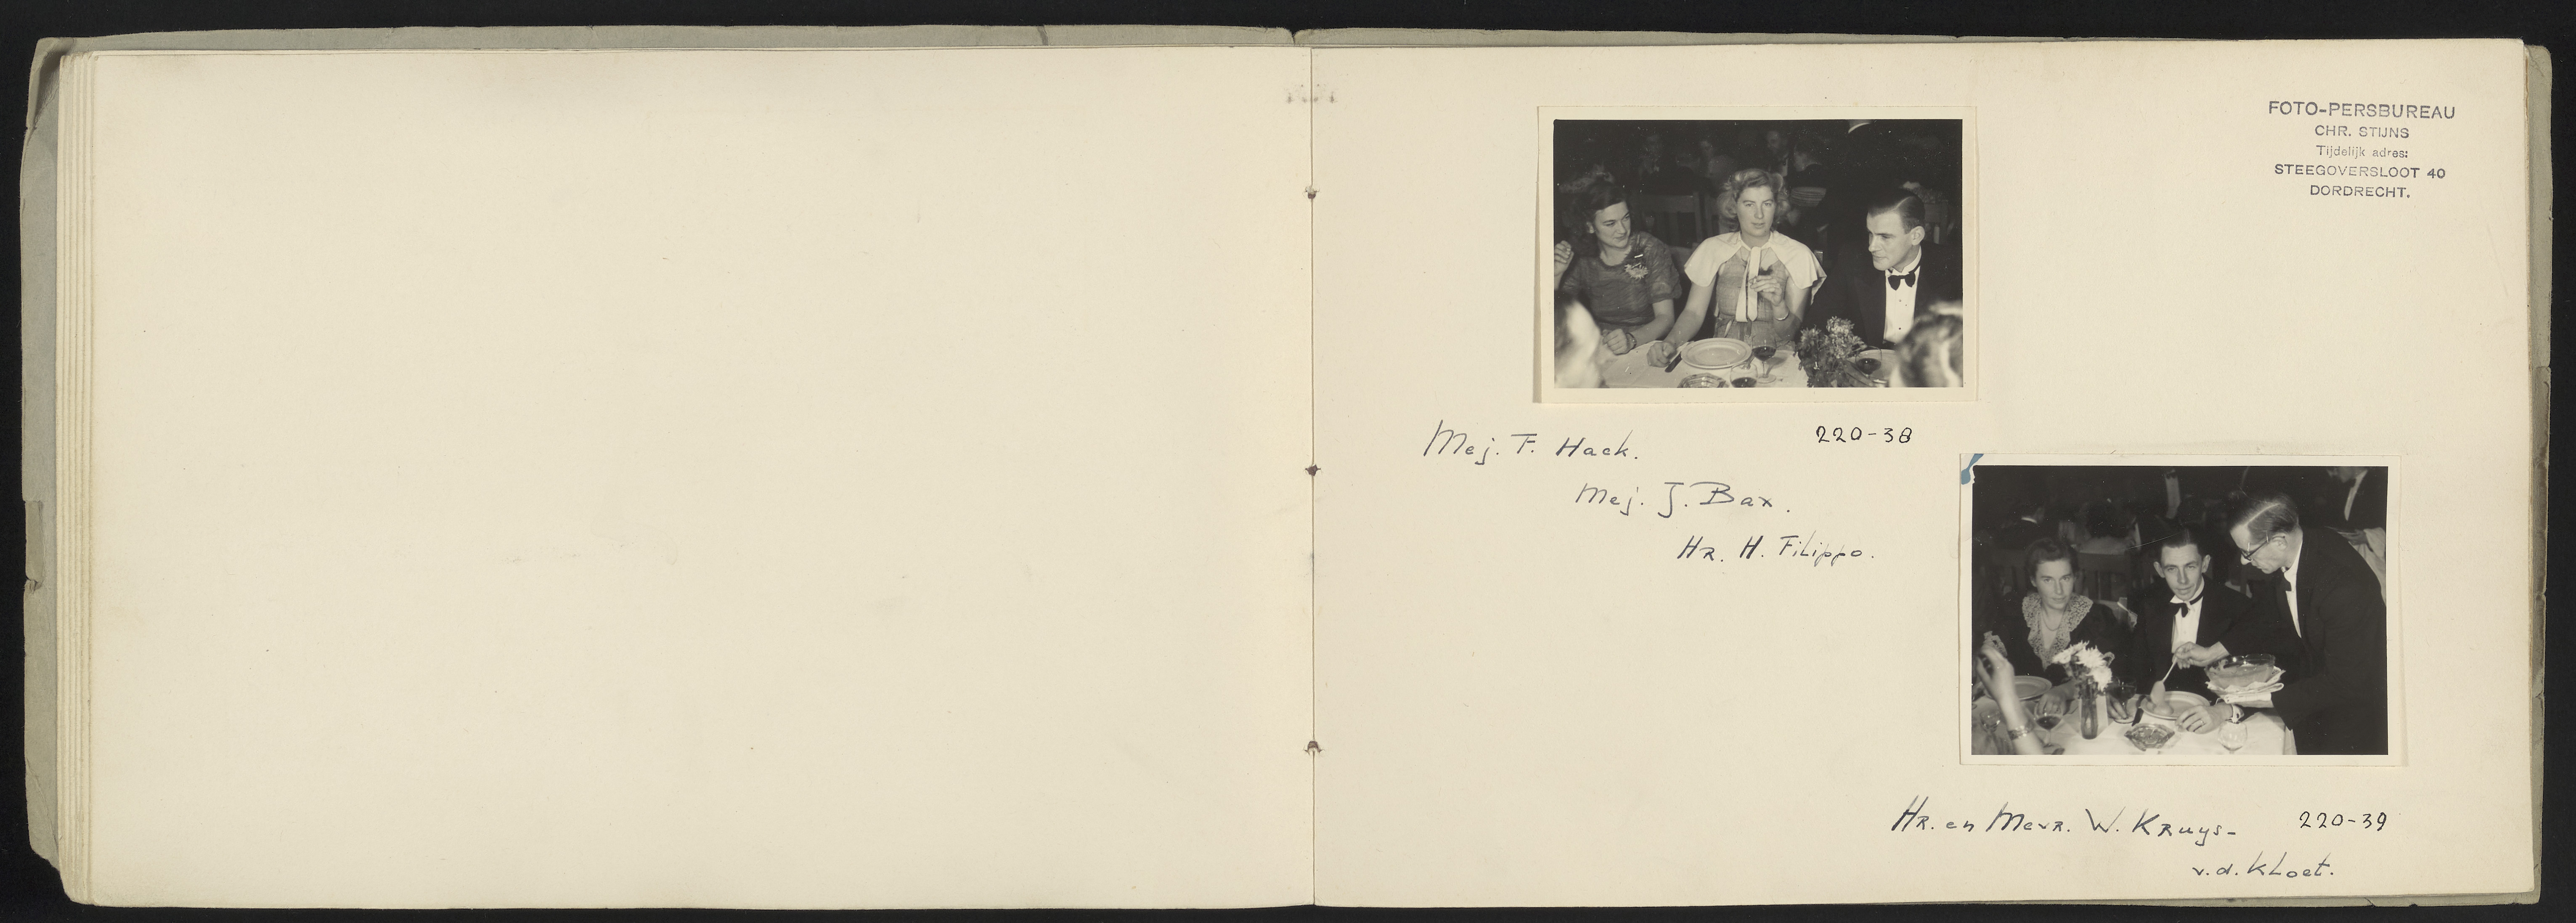 FOTO-PERSBUREAU
CHR. STIJNS
Tijdelijk adres:
STEEGOVERSLOOT 40
DORDRECHT.
Mej. F. Hack.
220-38
Mej. J. Bax.
Hr. H. Filippo.
Hr. en Mevr. W. Kruys-
220-39
v.d. Kloet.